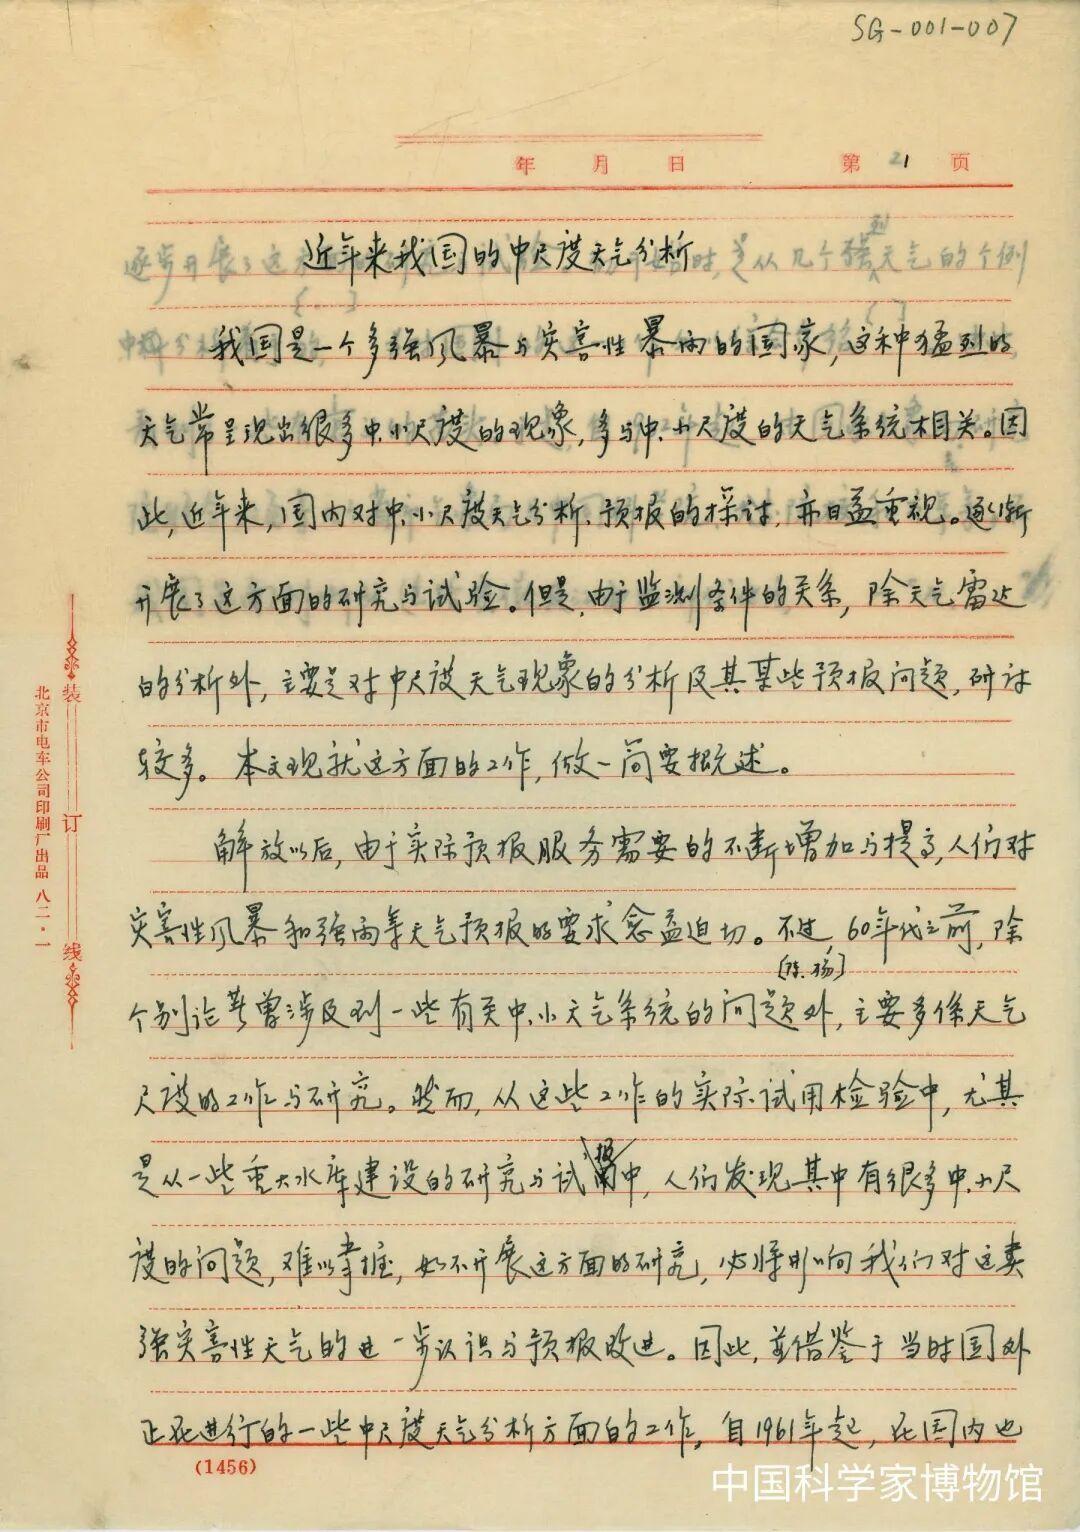 SG-001-007
年 月 日 第 21 页
近年来我国的中尺度天气分析
我国是一个多强风暴与灾害性暴雨的国家，这种猛烈的
天气常呈现出很多中、小尺度的现象，多与中、小尺度的天气系统相关。因
此，近年来，国内对中、小尺度天气分析、预报的探讨，亦日益重视。逐渐
开展了这方面的研究与试验。但是，由于监测条件的关系，除天气雷达
的分析外，主要是对中尺度天气现象的分析及其某些预报问题，研讨
较多。本文现就这方面的工作，做一简要概述。
解放以后，由于实际预报服务需要的不断增加与提高，人们对
灾害性风暴和强雨等天气预报的要求愈益迫切。不过，60年代之前，除
[陈、杨]
个别论著曾涉及到一些有关中、小天气系统的问题外，主要多係天气
尺度的工作与研究。然而，从这些工作的实际试用检验中，尤其
是从一些重大水库建设的研究与试报中，人们发现其中有很多中、小尺
度的问题，难以掌握，如不开展这方面的研究，必将影响我们对这类
强灾害性天气的进一步认识与预报改进。因此，并借鉴于当时国外
正在进行的一些中尺度天气分析方面的工作。自1961年起，在国内也
(1456)
装订线
北京市电车公司印刷厂出品 八二·一
中国科学家博物馆